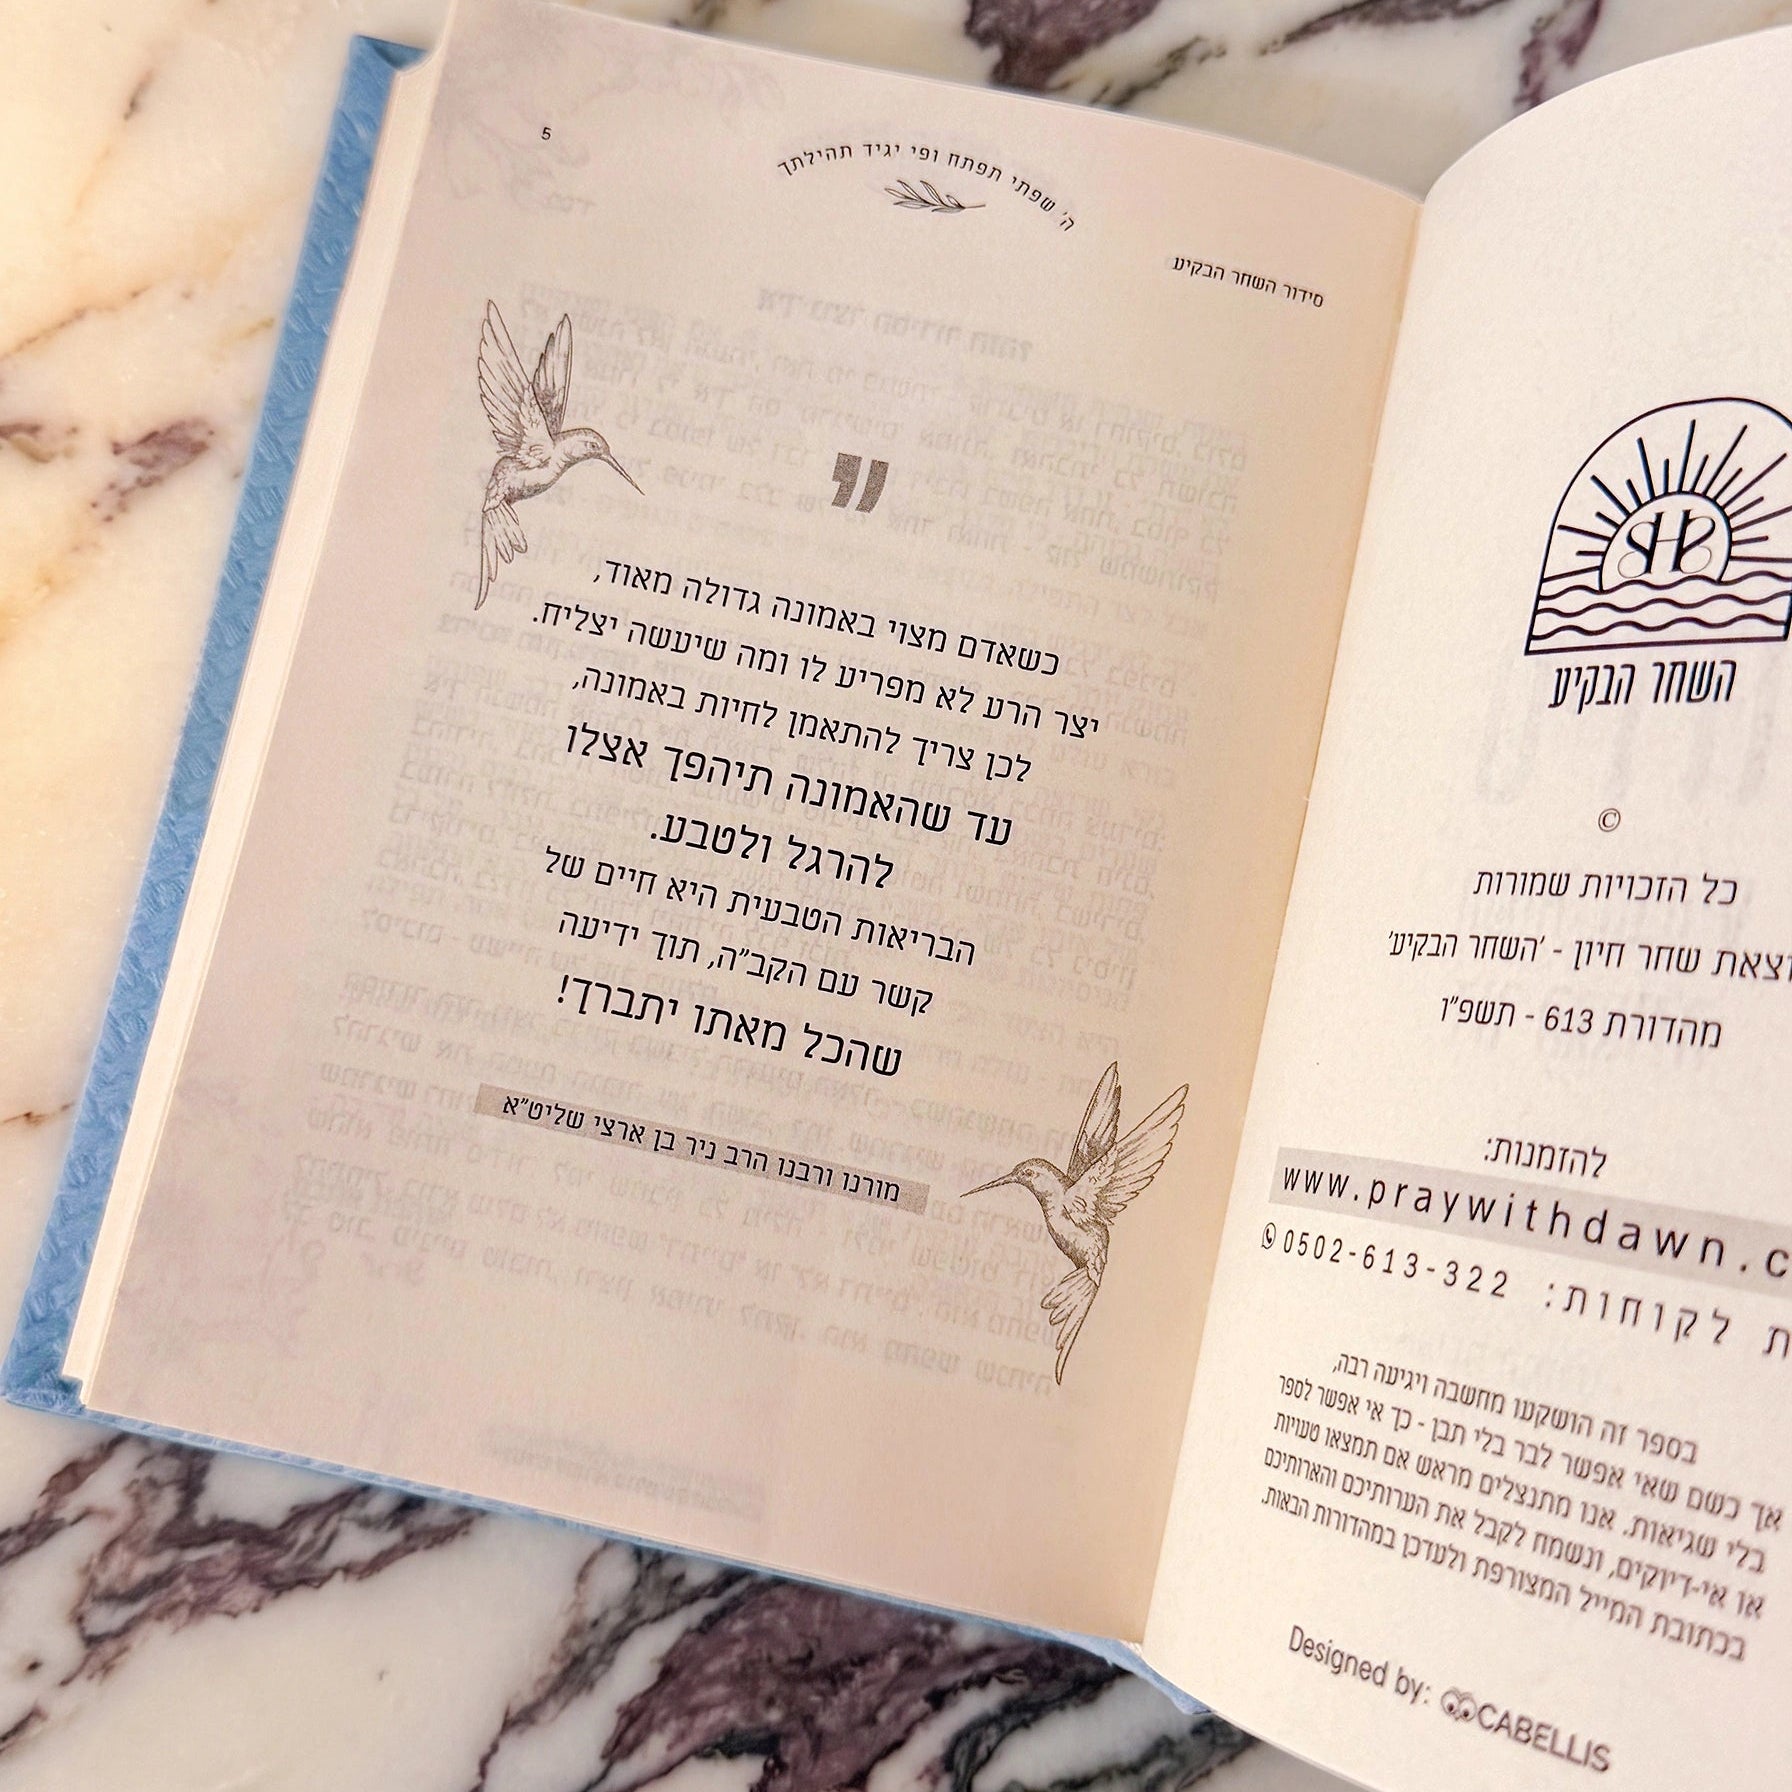 5
ה' שפתי תפתח ופי יגיד תהילתך
סידור השחר הבקיע
"
כשאדם מצוי באמונה גדולה מאוד,
יצר הרע לא מפריע לו ומה שיעשה יצליח.
לכן צריך להתאמן לחיות באמונה,
עד שהאמונה תיהפך אצלו
להרגל ולטבע.
הבריאות הטבעית היא חיים של
קשר עם הקב"ה, תוך ידיעה
שהכל מאתו יתברך!
מורנו ורבנו הרב ניר בן ארצי שליט"א
השחר הבקיע
©
כל הזכויות שמורות
שחר חיון - 'השחר הבקיע'
מהדורת 613 - תשפ"ו
להזמנות:
www.praywithdawn.c
לקוחות: 0502-613-322
בספר זה הושקעו מחשבה ויגיעה רבה,
אך כשם שאי אפשר לבר בלי תבן - כך אי אפשר לספר
בלי שגיאות. אנו מתנצלים מראש אם תמצאו טעויות
או אי-דיוקים, ונשמח לקבל את הערותיכם והארותיכם
בכתובת המייל המצורפת ולעדכן במהדורות הבאות.
Designed by: CABELLIS